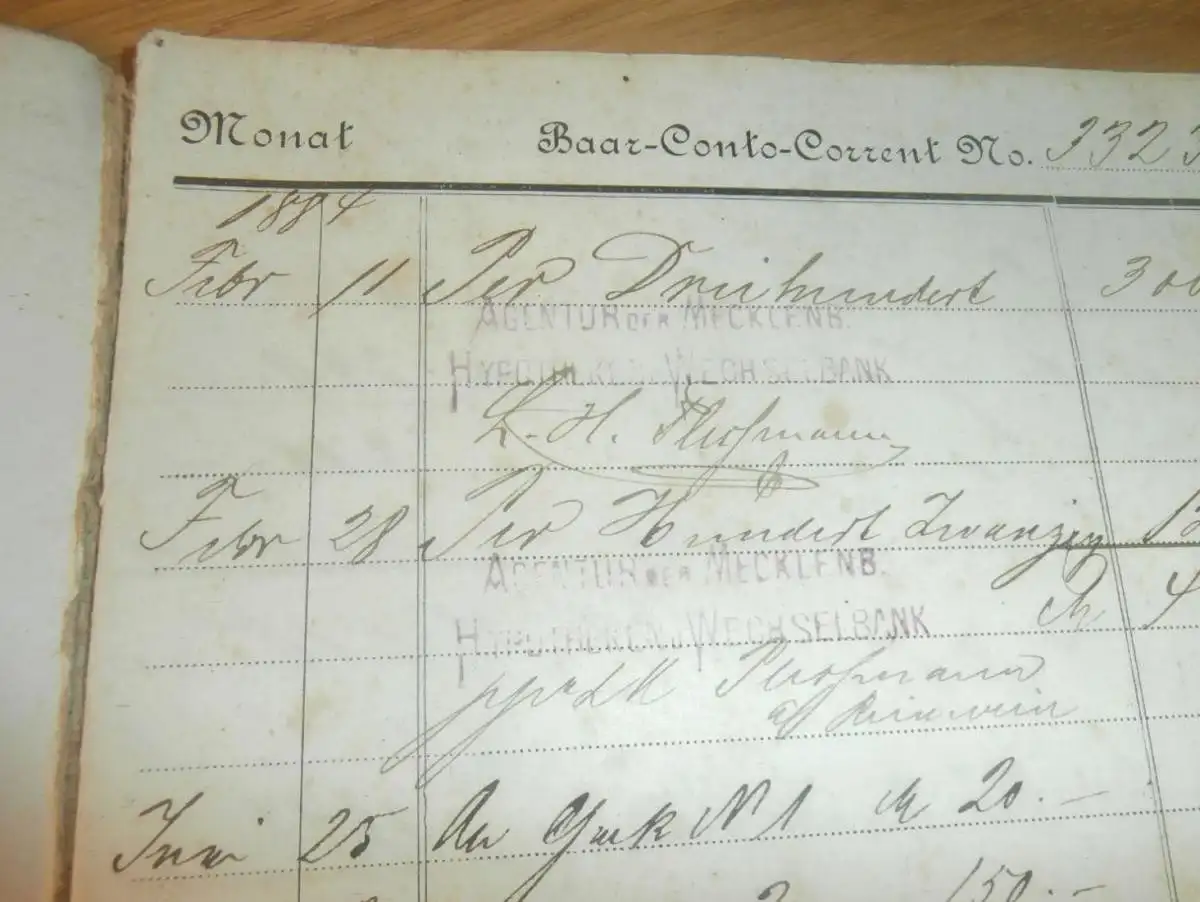 Monat Baar-Conto-Corrent No. 3323
1884
Febr 11 Per Dreihundert 300
AGENTUR DER MECKLENB.
HYPOTHEKEN U WECHSELBANK
L. H.
Febr 28 Per Hundert Zwanzig 12
AGENTUR DER MECKLENB.
HYPOTHEKEN U WECHSELBANK
Juni 25 An Check No 1 M 20.-
150.-